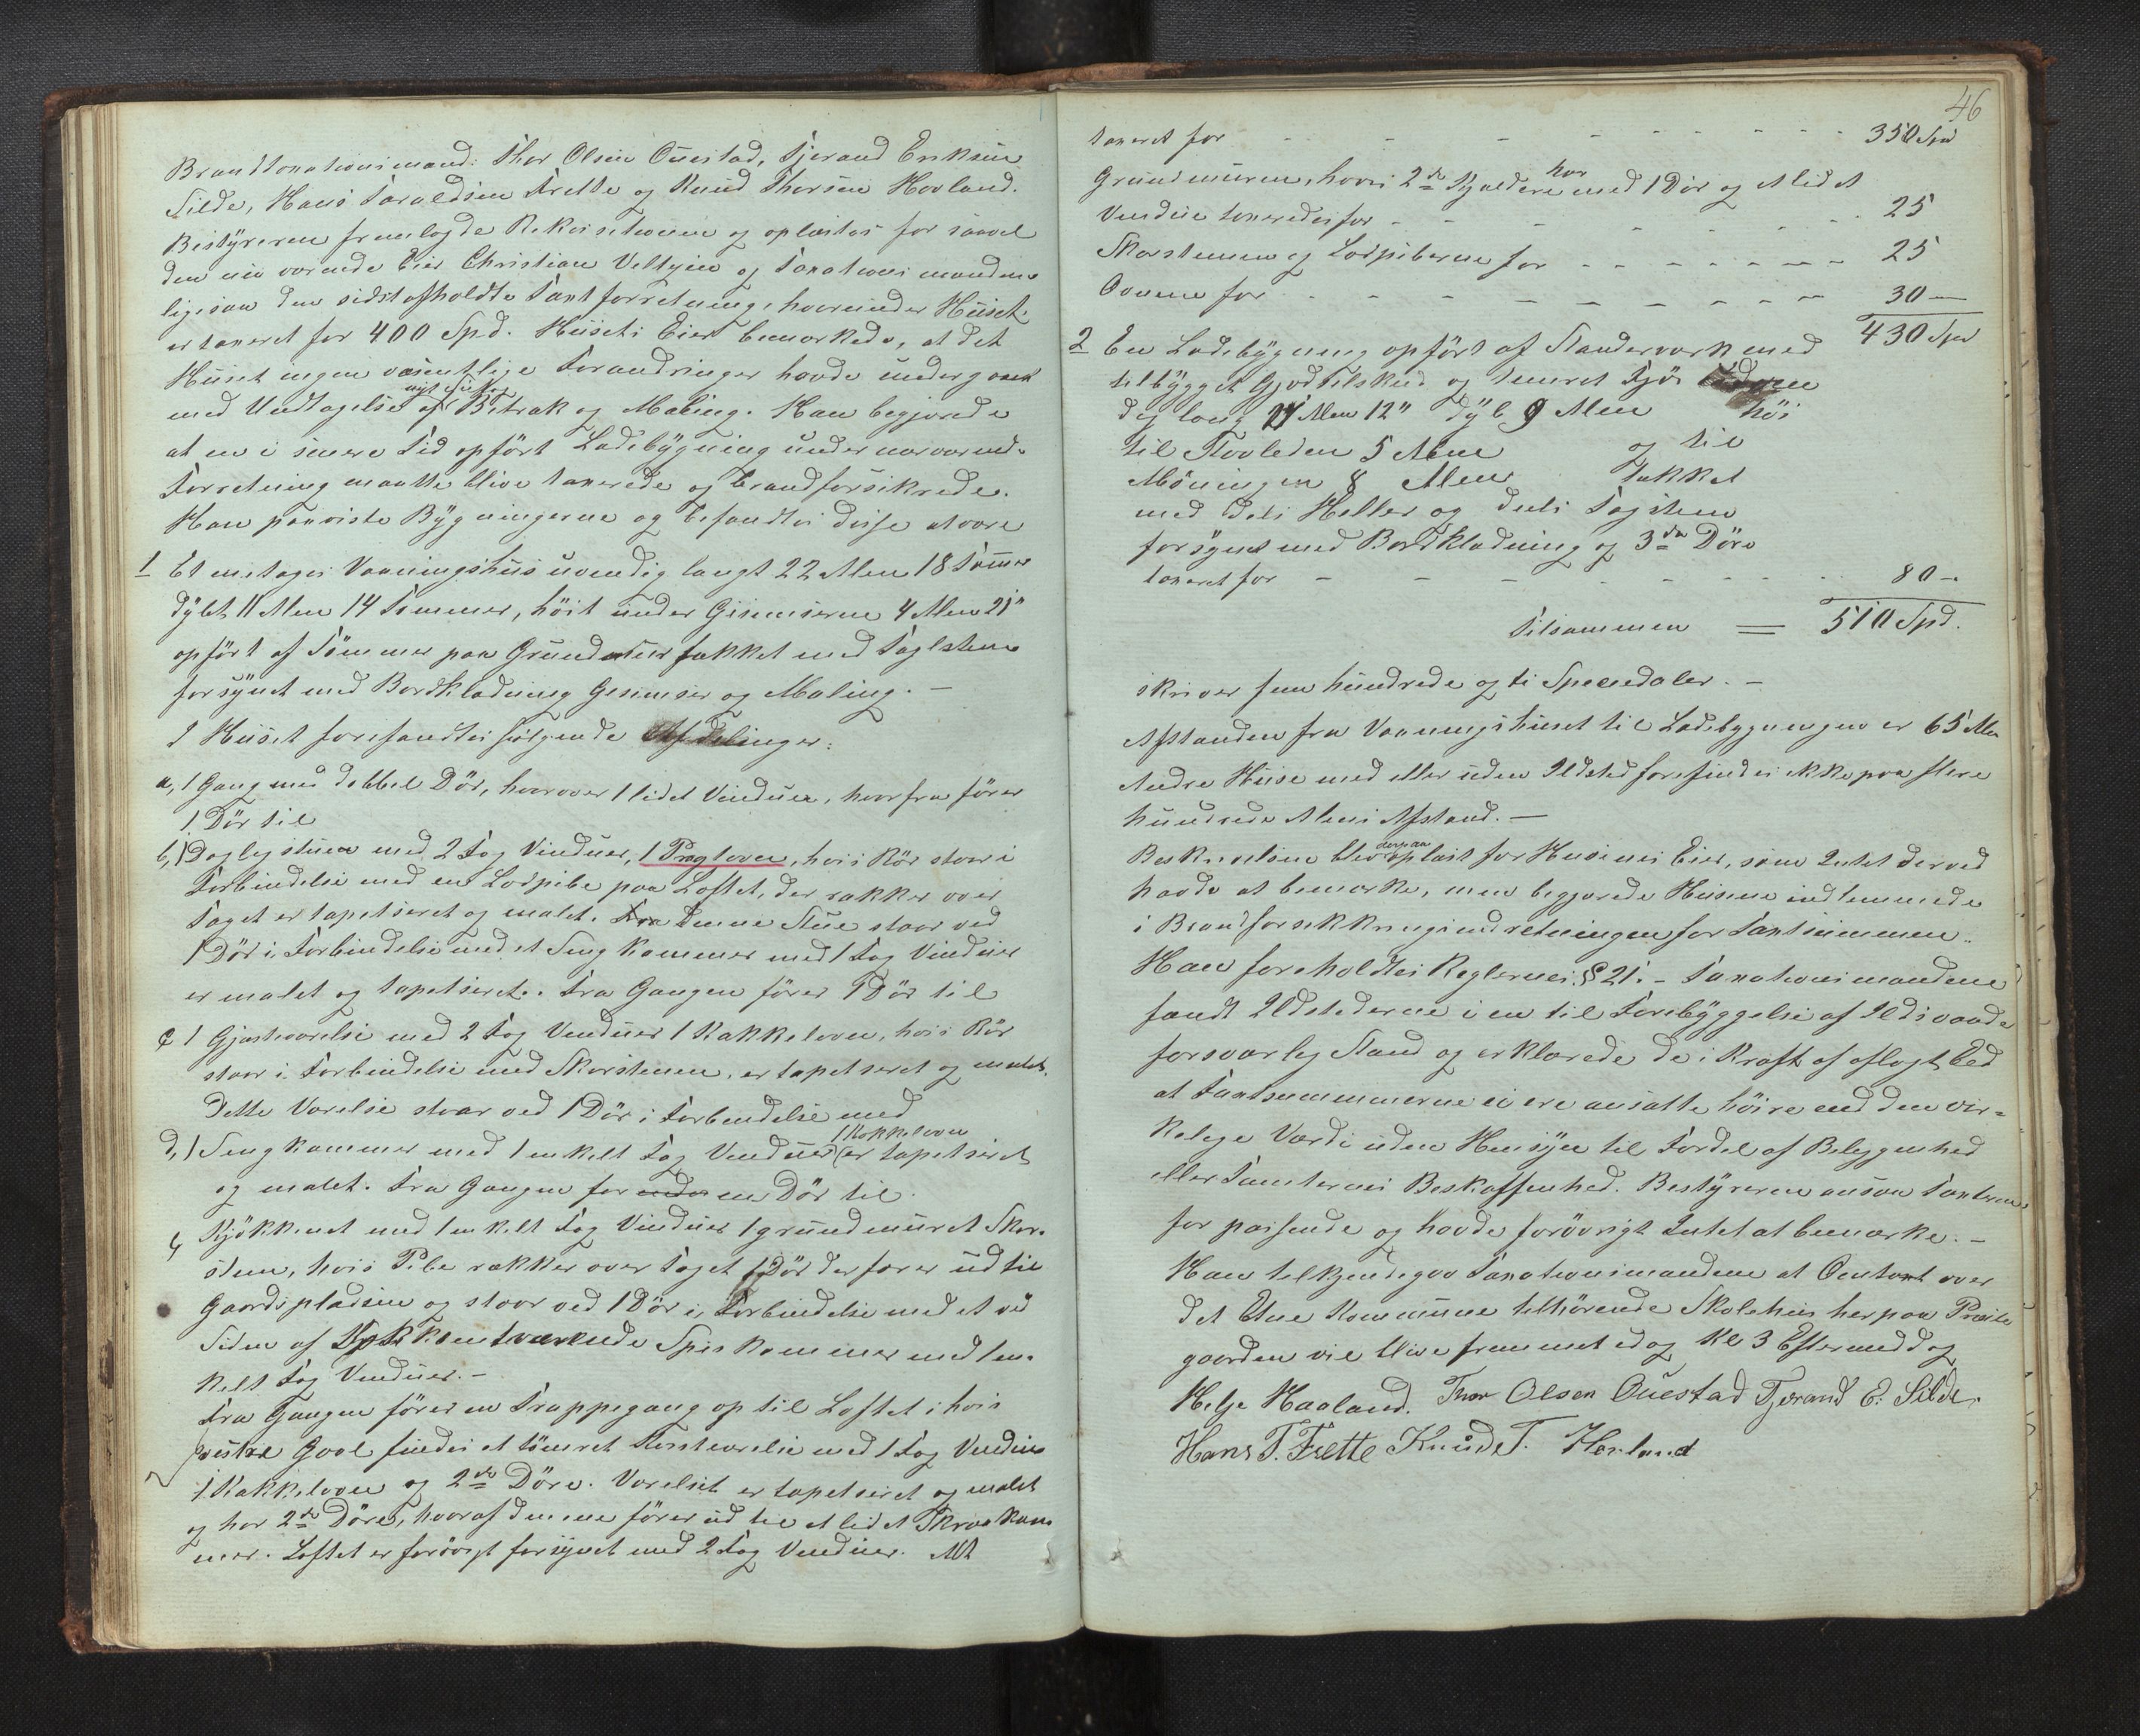 Brandtaxationsmænd: Thor Olsen Øuestad, Tjerand Eriksen
Silde, Hans Taraldsen Frette og Knud Thorsen Hovland.
Bestyreren fremlagde Rekvisitionen og oplæstes for saavel
den nu værende Eier Christian Veltzin og Taxationsmændene
ligesaa den sidst afholdte Taxtforretning, hvorunder Huset
er taxeret for 400 Spd. Husets Eier bemærkede, at det
Huset ingen væsentlige Forandringer havde undergaaet
med Undtagelse af nyt Betræk og Maling. Han begjærede
at en i senere Tid opført Ladebygning under nærværende
Forretning maatte blive taxerede og brandforsikrede.
Han paaviste Bygningerne og befandtes disse at være
1 Et enetages Vaaningshus uvendig langt 22 Alen 18 Tommer
dybt 11 Alen 14 Tommer, höit under Gesimserne 4 Alen 21"
opført af Tömmer paa Grundmur takket med Taglsteen
forsynet med Bordklædning Gesimser og Maling. –
I Huset forefandtes følgende Afdelinger:
a, 1 Gang med dobbel Dör, hvorover 1 lidet Vindue, hvorfra förer
1 Dör til
b, 1 Daglejstue med 2 Fag Vinduer, 1 Pragtovn, hvis Rör staar i
Forbindelse med en Lodpibe paa Loftet, der rækker over
Taget er tapetseret og malet. Fra Denne Stue staar ved
1 Dör i Forbindelse med et Sengkammer med 1 Fag Vinduer
er malet og tapetseret. Fra Gangen förer 1 Dör til
c 1 Gjæsteværelse med 2 Fag Vinduer 1 Kakkelovn, hvis Rör
staar i Forbindelse med Skorstenen, er tapetseret og malet.
Dette Værelse staar ved 1 Dör i Forbindelse med
d, 1 Sengkammer med 1 enkelt Fag Vinduer 1 Kakkelovn er tapetseret
og malet. Fra Gangen før en Dör til
Kjökkenet med 1 enkelt Fag Vinduer 1 grundmuret Skor-
sten, hvis Pibe rækker over Taget 1 Dör der fører ud til
Gaardspladsen og staar ved 1 Dör i Forbindelse med et ved
Siden af Kjökkenet værende Spiskammer med 1 en-
kelt Fag Vinduer. –
Fra Gangen förer en Trappegang op til Loftet i hvis
vestre Gavl findes et tömret Værelse med 1 Fag Vinduer
1 Kakkelovn og 2de Döre. Værelset er tapetseret og malet
og har 2de Döre, hvoraf denne förer ud til et lidet Skraakam
mer. Loftet er forövrigt forsynet med 2 Fag Vinduer. Alt
46
taxeret for – – – 350 Spd
Grundmuren, hvori 2de Kjældere har med 1 Dör og et lidet
Vindue taxeredes for – – – 25
Skorstenen og Lodpiberne for – – – 25
Ovnene for – – – 30 –
430 Spd
2 En Ladebygning opført af Standerværk med
tilbygget Gjødselskud og tømret Fjös
dej lang 21 Alen 12" dyb 9 Alen höi
til Raaleden 5 Alen og til
Möningen 8 Alen takket
med dels Heller og dels Tagsteen
forsynet med Bordklædning og 3de Döre
taxeret for – – – 80 –
Tilsammen = 510 Spd.
skriver fem hundrede og ti Speciedaler. –
Afstanden fra Vaaningshuset til Ladebygningen er 65 Alen
Andre Huse med eller uden Ildsted forefindes ikke paa flere
hundrede Alens Afstand. –
Beskrivelsen blev derpaa oplæst for Husenes Eier, som Intet derved
havde at bemærke, men begjærede Husene indlemmede
i Brandforsikkringsindretningen for Taxtsummen.
Han foreholdtes Reglernes § 21. – Taxationsmændene
fandt Ildstederne i en til Forebyggelse af Ildsvaade
forsvarlig Stand og erklærede de i Kraft af aflagt Eed
at Taxtsummerne ei ere ansatte höire end den vir-
kelige Værdi uden Hensyn til Fordel af Beliggenhed
eller Tomternes Beskaffenhed. Bestyreren ansaa Taxterne
for passende og havde forövrigt Intet at bemærke. –
Han tilkjendegav Taxationsmændene at Omtaxt over
det Etne Kommune tilhörende Skolehus her paa Præste
gaarden vil blive fremmet idag Kl 3 Eftermiddag
Helje Haaland. Thor Olsen Øuestad Tjerand E. Silde.
Hans T. Frette Knud T. Hovland